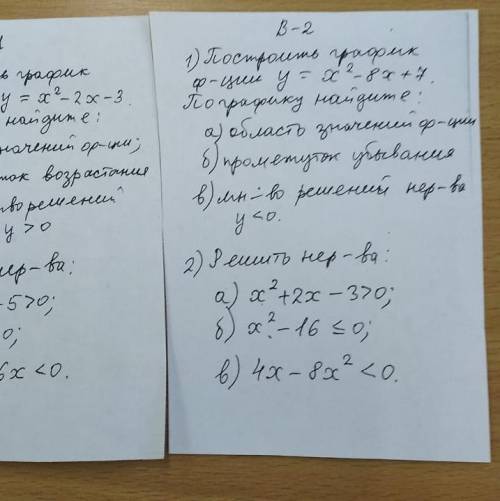 ь график
y = x² - 2x - 3.
найдите:
значений ф-ции;
ток возрастания
тво решений
y > 0
нер-ва:
- 5 > 0;
0;
6x < 0.
В-2
1) Построить график
ф-ции y = x² - 8x + 7.
По графику найдите:
а) область значений ф-ции
б) промежуток убывания
в) мн-во решений нер-ва
y < 0.
2) Решить нер-ва:
а) x² + 2x - 3 > 0;
б) x² - 16 ≤ 0;
в) 4x - 8x² < 0.